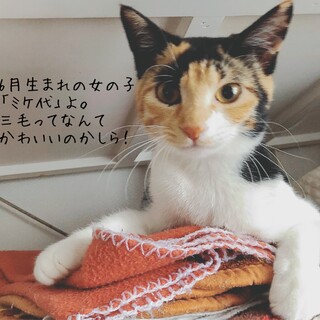 6月生まれの女の子
「ミケ代」よ。
三毛ってなんて
かわいいのかしら!